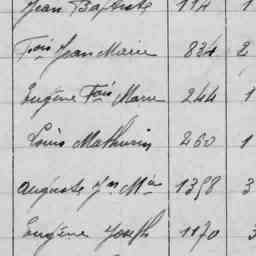 Jean Baptiste 114 1
Fois Jean Marie 834 2
Eugène Fois Marie 244 1
Louis Mathurin 260 1
Auguste Jn Mie 1358 3
Eugène Joseph 1170 3